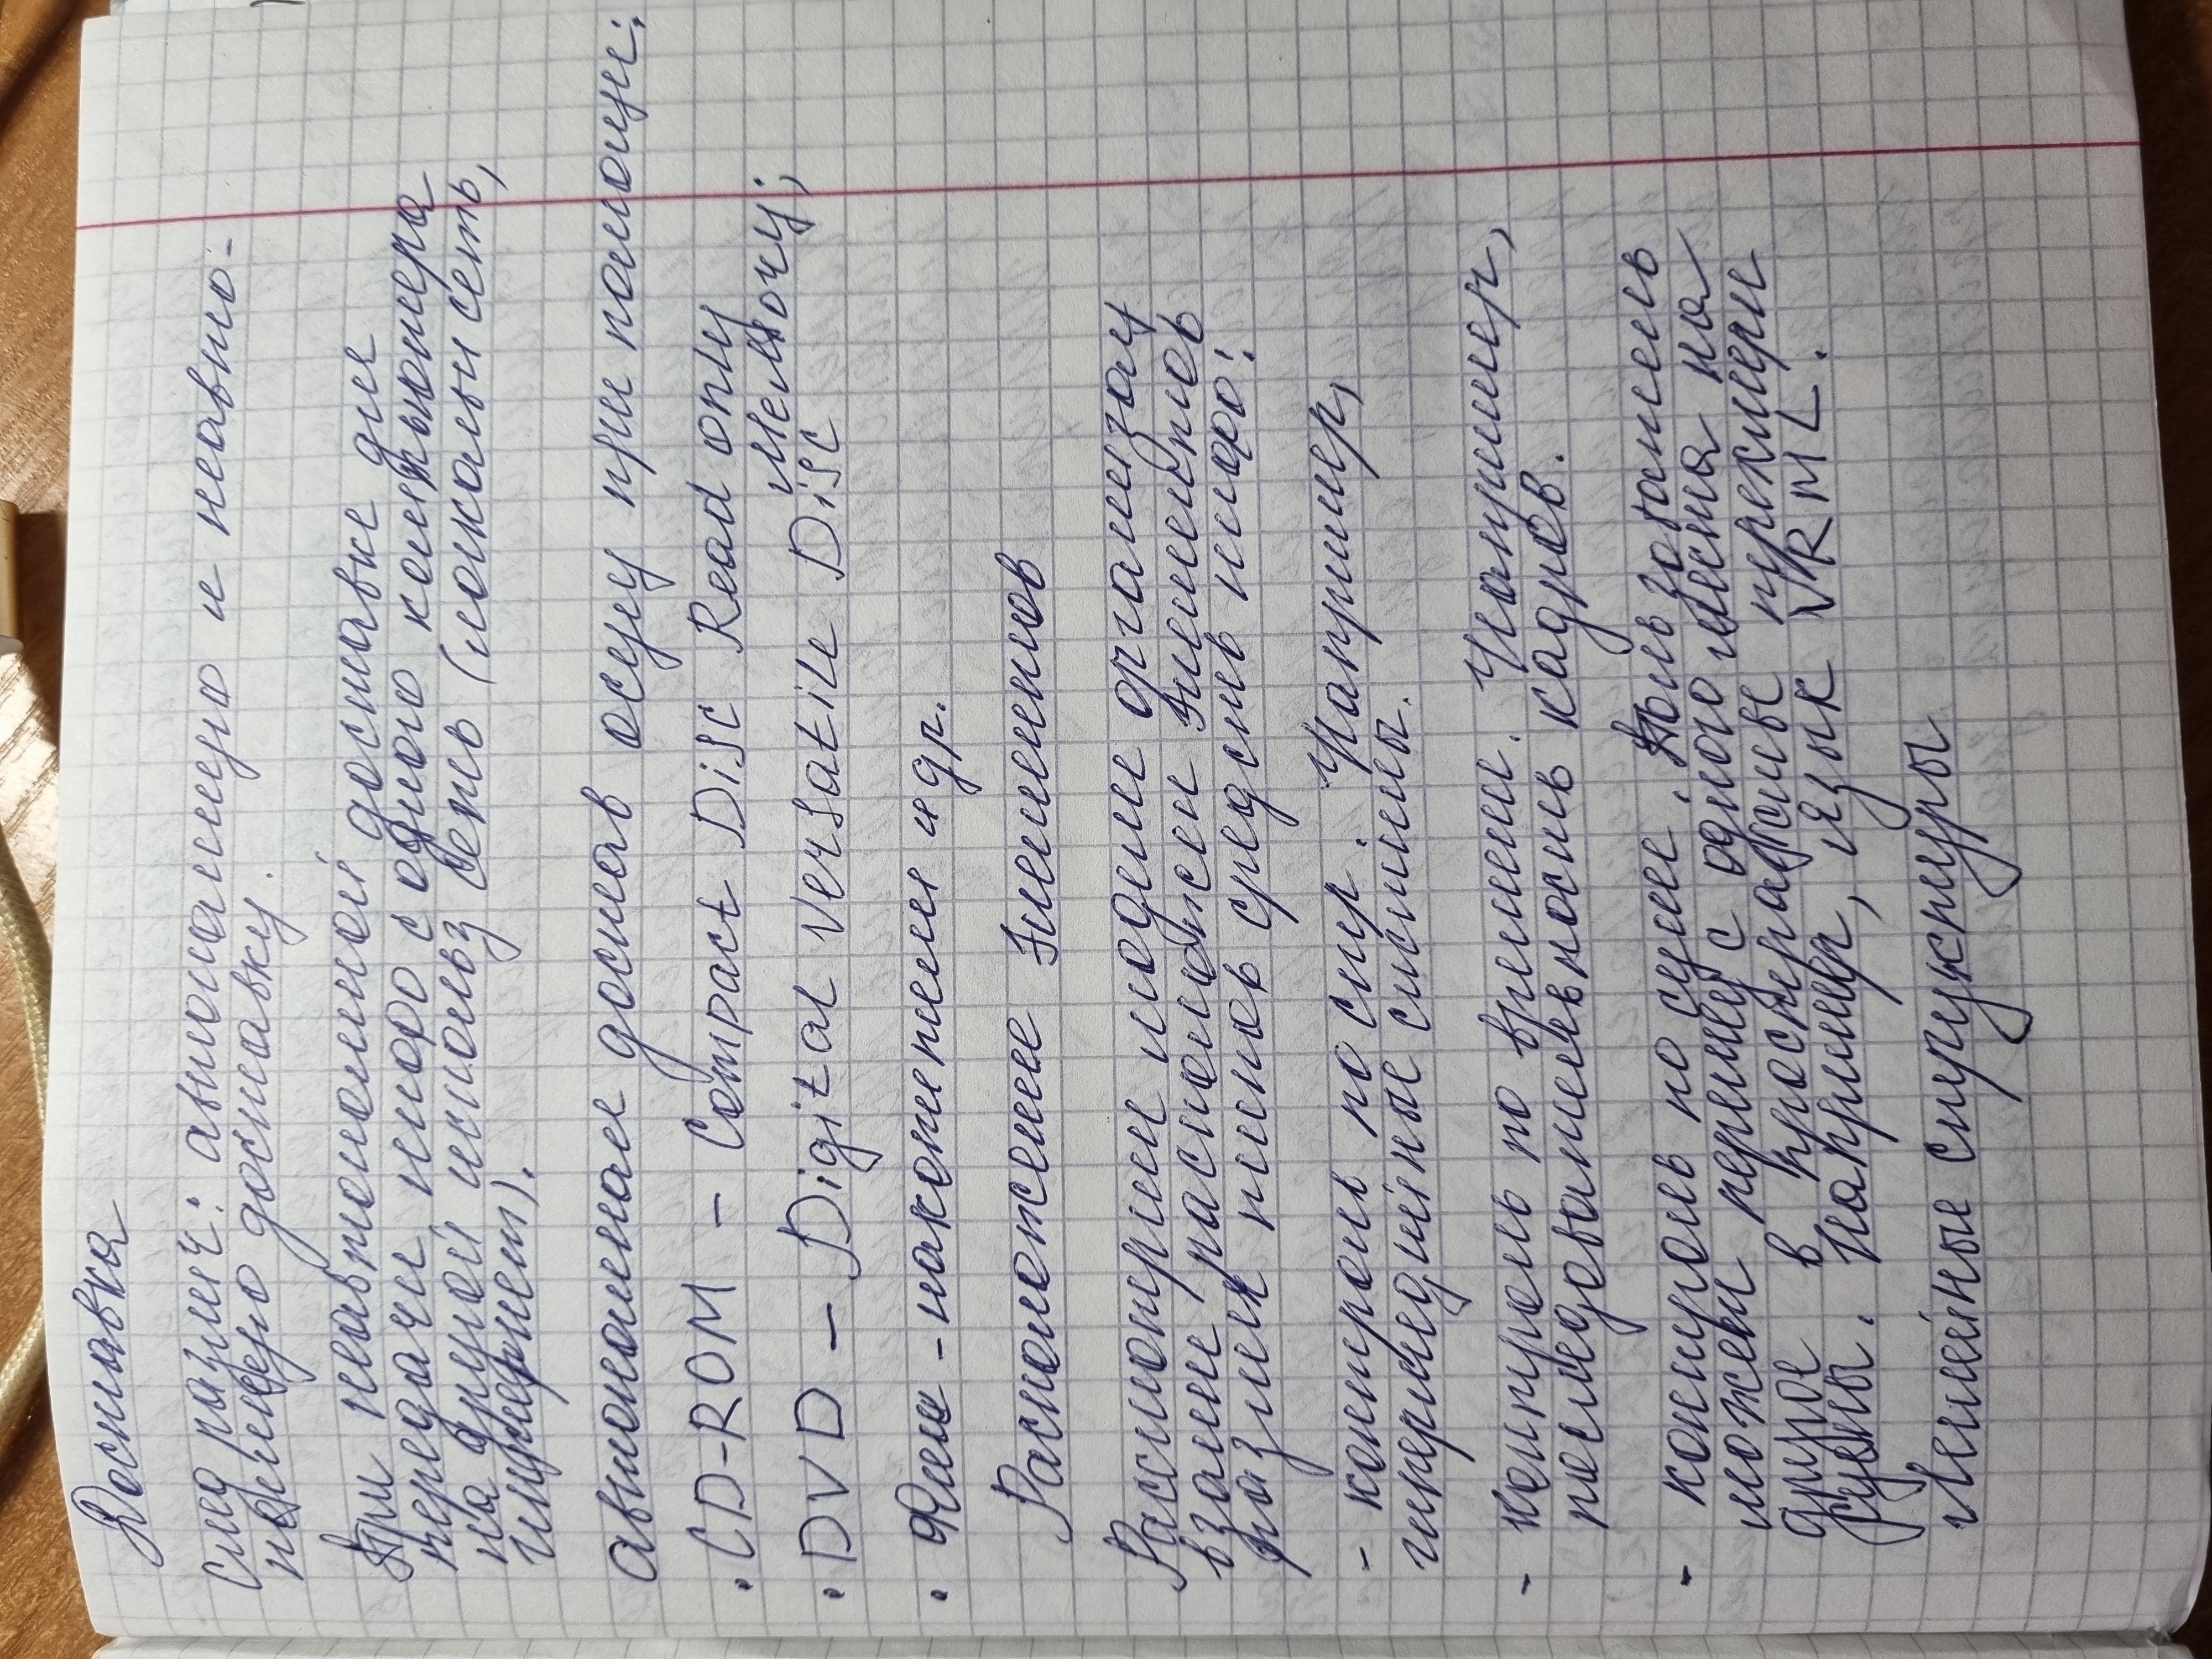 Доставка
след различ: автономную и неавто-
номную доставку.
При неавтономной доставке для
передачи инфо с одного компьютера
на другой использ сеть (локальн сеть,
интернет).
автономная достав осущ при помощи:
• CD-ROM - Compact Disc Read only
Memory;
• DVD - Digital Versatile Disc
• Флеш - накопители и др.
Расположение элементов
Рассмотрим модели организац
взаим расположен элементов
различ типов средств инфо:
- контроль по стр. Например,
гипермедийные системы.
- контроль по времени. Например,
последовательность кадров.
- контроль по сцене. Пользователь
может перемещ с одного места на
другое в пространстве трехмерн
сцены. Например, язык VRML.
Линейные структуры